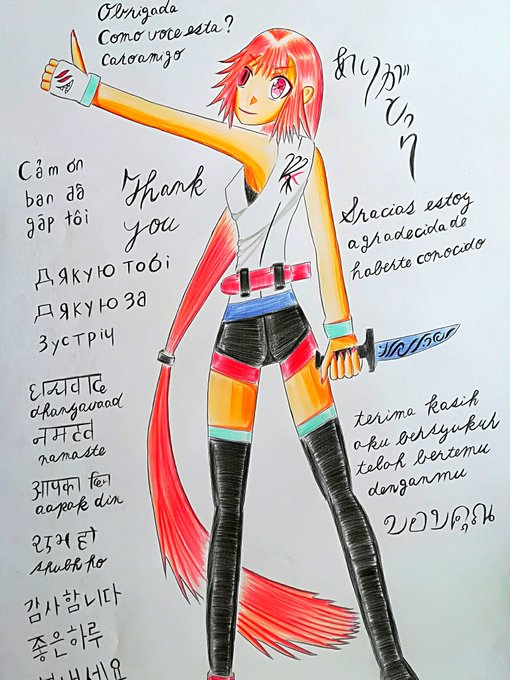 Obrigada
Como voce esta?
Caroamigo
ありが
と
う
Cảm ơn
bạn đã
gặp tôi
Thank
you
Gracias estoy
agradecida de
haberte conocido
Дякую тобі
Дякую за
зустріч
धन्यवाद
dhanyavaad
नमस्ते
namaste
आपका दिन
aapak din
शुभ हो
shubh ho
terima kasih
aku bersyukur
telah bertemu
denganmu
ขอบคุณ
감사합니다
좋은하루
보내세요